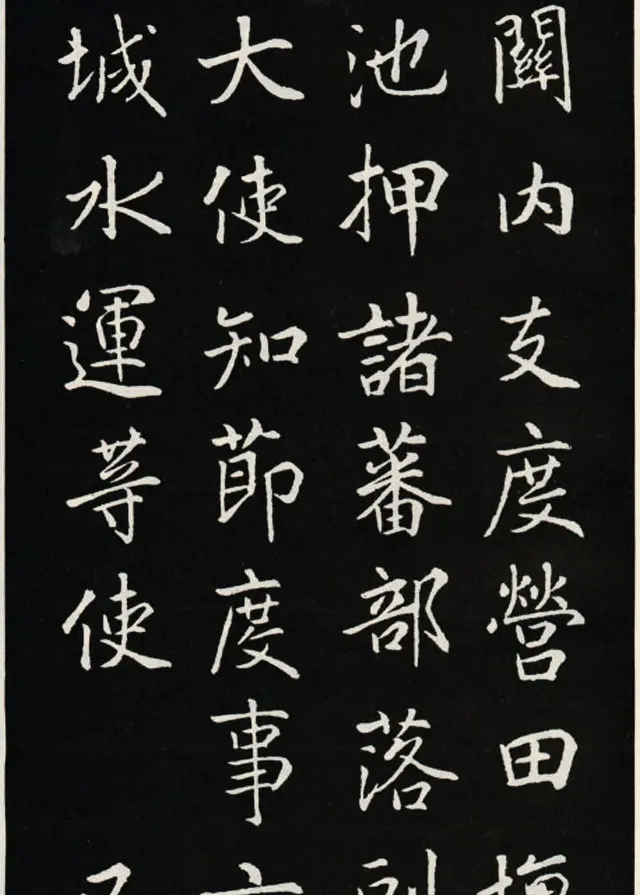 關内支度營田
池押諸蕃部落
大使知節度事
城水運等使